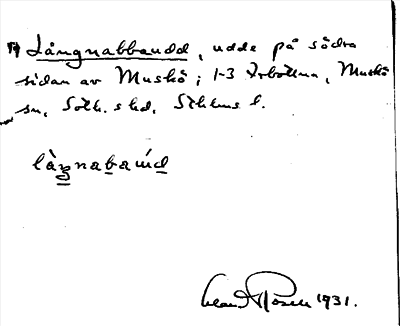 Långnabbaudd, udde på södra
sidan av Muskö; 1-3 Arbottna, Muskö
sn, Soth. shd, Sthlms l.
Rosell 1931.